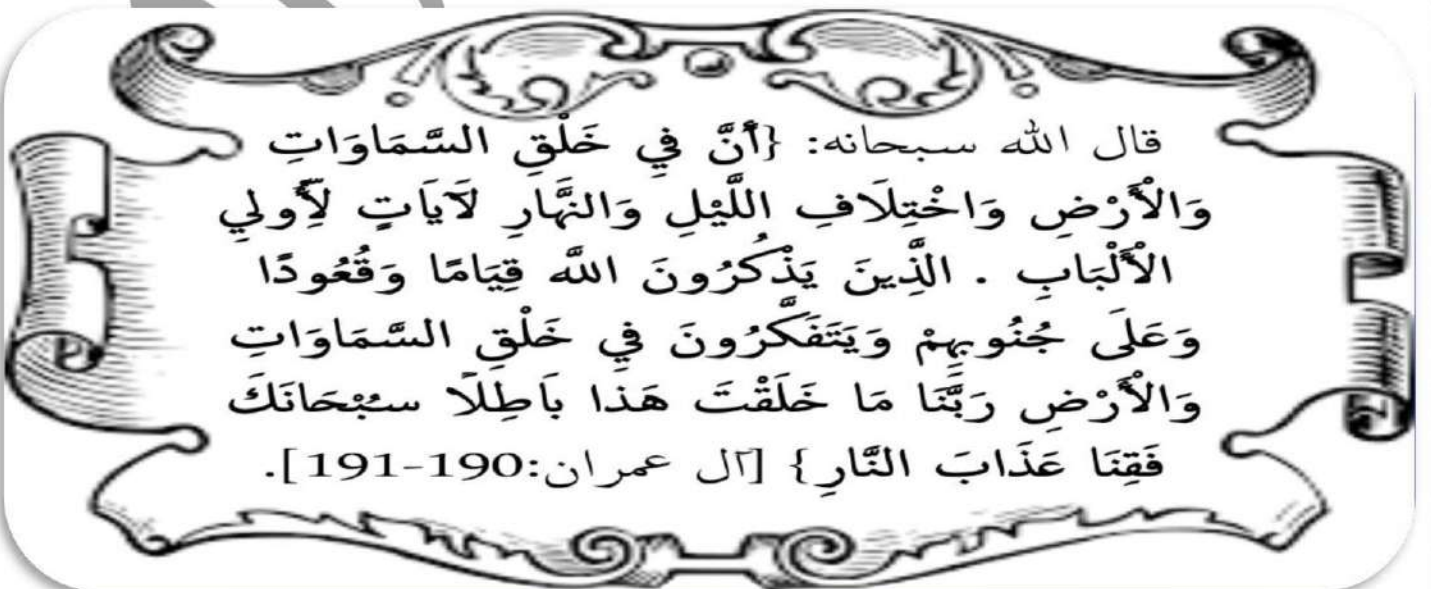 قال الله سبحانه: {أَنَّ فِي خَلْقِ السَّمَاوَاتِ
وَالْأَرْضِ وَاخْتِلَافِ اللَّيْلِ وَالنَّهَارِ لَآيَاتٍ لِّأُولِي
الْأَلْبَابِ . الَّذِينَ يَذْكُرُونَ اللَّه قِيَامًا وَقُعُودًا
وَعَلَى جُنُوبِهِمْ وَيَتَفَكَّرُونَ فِي خَلْقِ السَّمَاوَاتِ
وَالْأَرْضِ رَبَّنَا مَا خَلَقْتَ هَذا بَاطِلًا سُبْحَانَكَ
فَقِنَا عَذَابَ النَّارِ} [آل عمران:190-191].